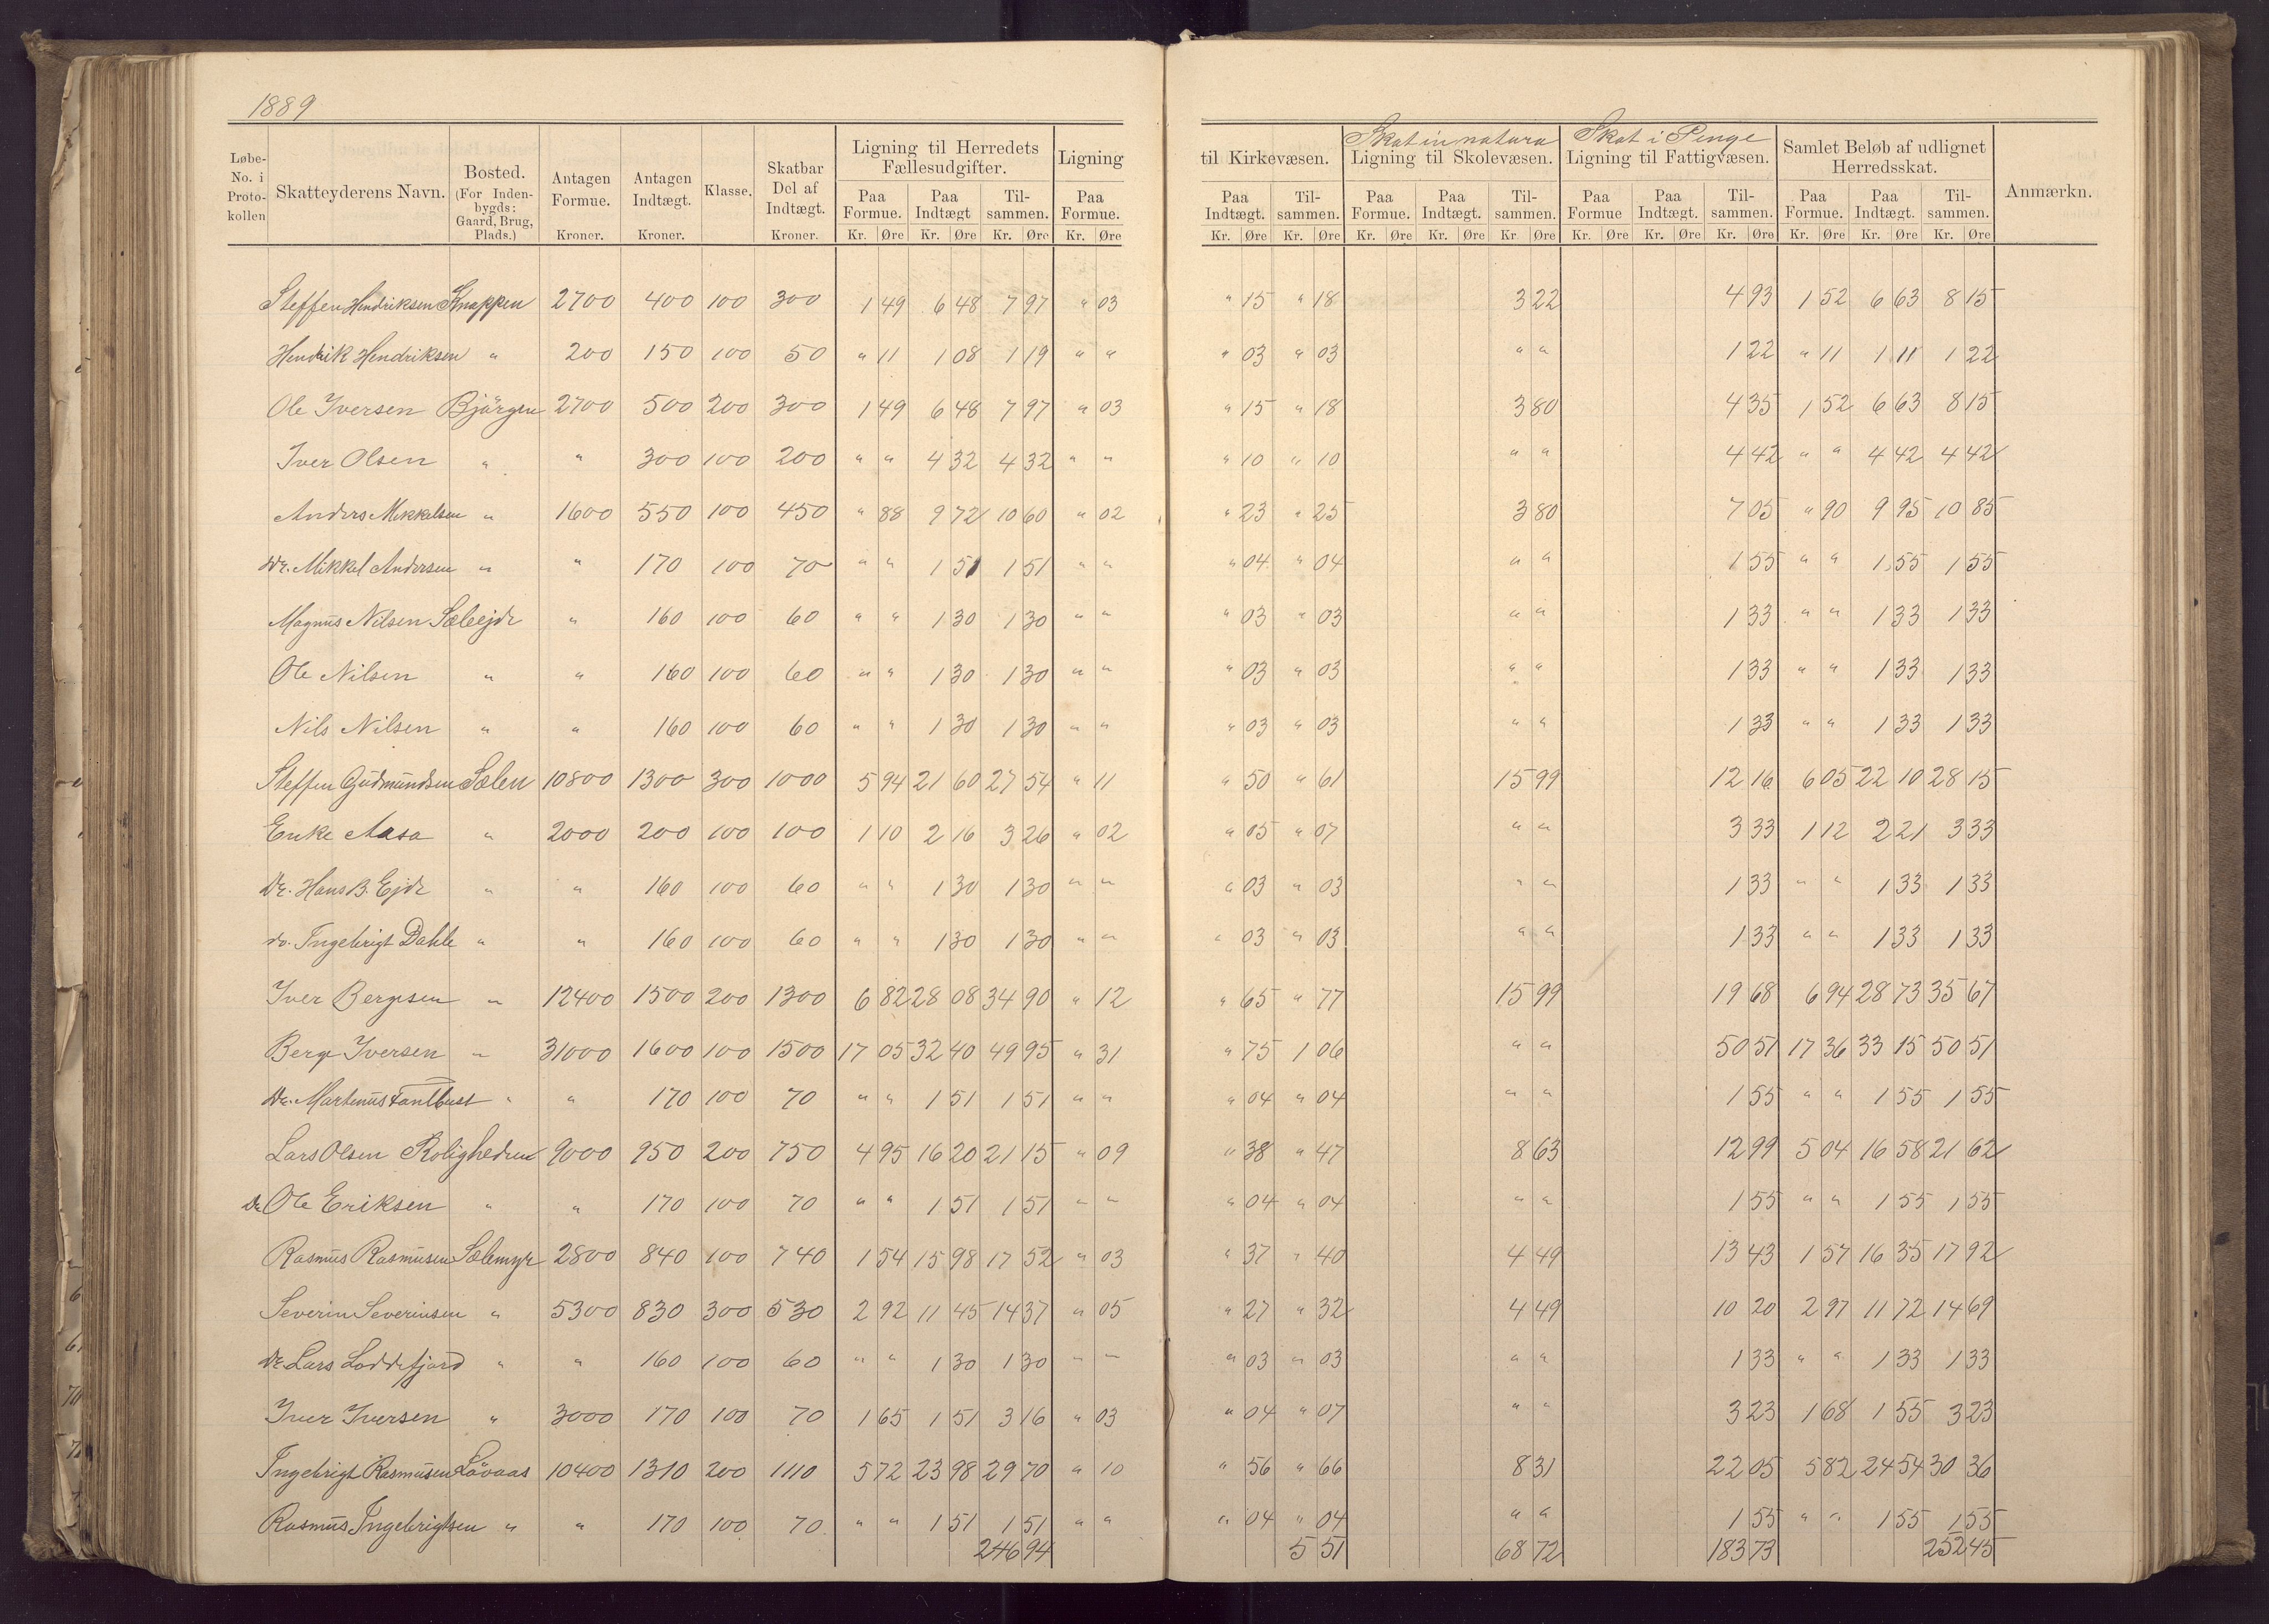 1889
Løbe-No. i Proto-kollen | Skatteyderens Navn. | Bosted. (For Inden-bygds: Gaard, Brug, Plads.) | Antagen Formue. Kroner. | Antagen Indtægt. Kroner. | Klasse. | Skatbar Del af Indtægt. Kroner. | Ligning til Herredets Fællesudgifter. Paa Formue. Kr. Øre Paa Indtægt Kr. Øre Til-sammen. Kr. Øre | Ligning Paa Formue. Kr. Øre | til Kirkevæsen. Paa Indtægt. Kr. Øre Til-sammen. Kr. Øre | Skat in natura Ligning til Skolevæsen. Paa Formue. Kr. Øre Paa Indtægt. Kr. Øre Til-sammen. Kr Øre | Skat i Penge Ligning til Fattigvæsen. Paa Formue Kr. Øre Paa Indtægt. Kr. Øre Til-sammen. Kr. Øre | Samlet Beløb af udlignet Herredsskat. Paa Formue. Kr. Øre Paa Indtægt. Kr. Øre Til-sammen. Kr. Øre | Anmærkn.
Steffen Hendriksen Knappen 2700 400 100 300 1 49 6 48 7 97 " 03 " 15 " 18 3 22 4 93 1 52 6 63 8 15
Hendrik Hendriksen " 200 150 100 50 " 11 1 08 1 19 " " " 03 " 03 " " 1 22 " 11 1 11 1 22
Ole Iversen Bjørgen 2700 500 200 300 1 49 6 48 7 97 " 03 " 15 " 18 3 80 4 35 1 52 6 63 8 15
Iver Olsen " " 300 100 200 " " 4 32 4 32 " " " 10 " 10 " " 4 42 " " 4 42 4 42
Anders Mikkelsen " 1600 550 100 450 " 88 9 72 10 60 " 02 " 23 " 25 3 80 7 05 " 90 9 95 10 85
Dr. Mikkel Andersen " " 170 100 70 " " 1 51 1 51 " " " 04 " 04 " " 1 55 " " 1 55 1 55
Magnus Nilsen Sæleejde " 160 100 60 " " 1 30 1 30 " " " 03 " 03 " " 1 33 " " 1 33 1 33
Ole Nilsen " " 160 100 60 " " 1 30 1 30 " " " 03 " 03 " " 1 33 " " 1 33 1 33
Nils Nilsen " " 160 100 60 " " 1 30 1 30 " " " 03 " 03 " " 1 33 " " 1 33 1 33
Steffen Gudmundsen Sælen 10800 1300 300 1000 5 94 21 60 27 54 " 11 " 50 " 61 15 99 12 16 6 05 22 10 28 15
Enke Aasa " 2000 200 100 100 1 10 2 16 3 26 " 02 " 05 " 07 " " 3 33 1 12 2 21 3 33
Dr. Hans B. Ejde " " 160 100 60 " " 1 30 1 30 " " " 03 " 03 " " 1 33 " " 1 33 1 33
do. Ingebrigt Dahle " " 160 100 60 " " 1 30 1 30 " " " 03 " 03 " " 1 33 " " 1 33 1 33
Iver Bergesen " 12400 1500 200 1300 6 82 28 08 34 90 " 12 " 65 " 77 15 99 19 68 6 94 28 73 35 67
Berge Iversen " 31000 1600 100 1500 17 05 32 40 49 95 " 31 " 75 1 06 " " 50 51 17 36 33 15 50 51
Dr. Martinus Fantbust " " 170 100 70 " " 1 51 1 51 " " " 04 " 04 " " 1 55 " " 1 55 1 55
Lars Olsen Roligheden 9000 950 200 750 4 95 16 20 21 15 " 09 " 38 " 47 8 63 12 99 5 04 16 58 21 62
Dr. Ole Eriksen " " 170 100 70 " " 1 51 1 51 " " " 04 " 04 " " 1 55 " " 1 55 1 55
Rasmus Rasmusen Sælemyr 2800 840 100 740 1 54 15 98 17 52 " 03 " 37 " 40 4 49 13 43 1 57 16 35 17 92
Severin Severinsen " 5300 830 300 530 2 92 11 45 14 37 " 05 " 27 " 32 4 49 10 20 2 97 11 72 14 69
Dr. Lars Loddefjord " " 160 100 60 " " 1 30 1 30 " " " 03 " 03 " " 1 33 " " 1 33 1 33
Iver Iversen " 3000 170 100 70 1 65 1 51 3 16 " 03 " 04 " 07 " " 3 23 1 68 1 55 3 23
Ingebrigt Rasmusen Løvaas 10400 1310 200 1110 5 72 23 98 29 70 " 10 " 56 " 66 8 31 22 05 5 82 24 54 30 36
Rasmus Ingebrigtsen " " 170 100 70 " " 1 51 1 51 " " " 04 " 04 " " 1 55 " " 1 55 1 55
246 94 5 51 68 72 183 73 252 45